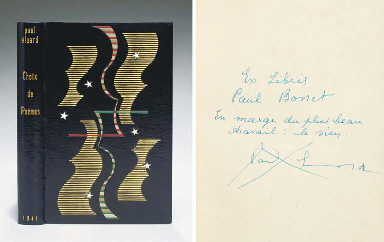 paul
éluard
Choix
de
Poèmes
1941
Ex Libris
Paul Bonet
En marge du plus beau
travail : le sien.
Paul